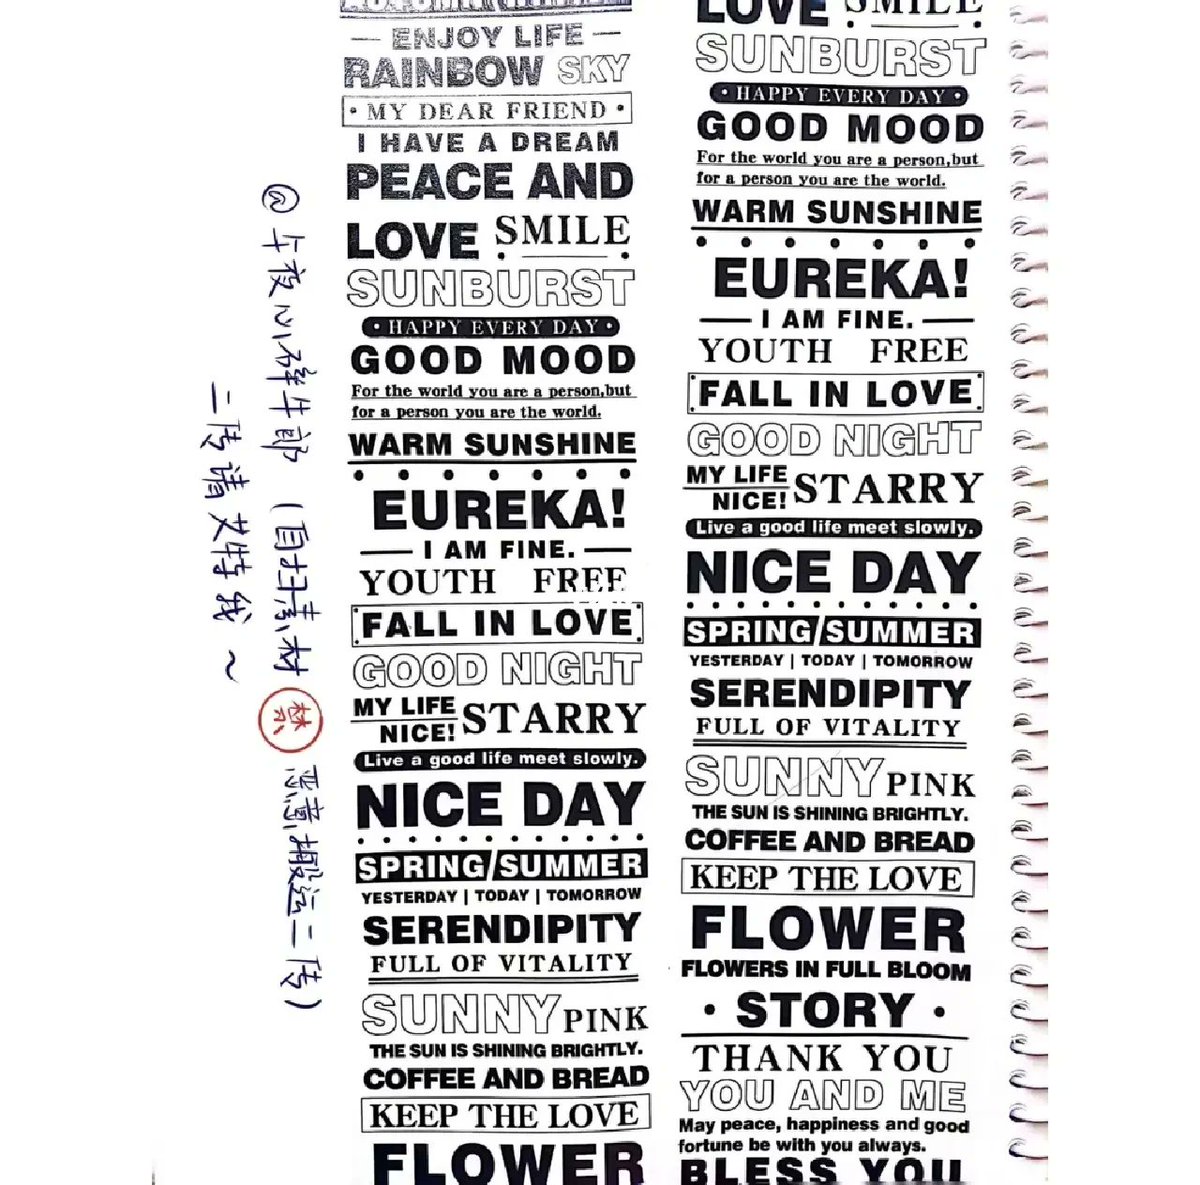 @午夜心碎牛郎（自扫素材 禁 恶意搬运二传）
二传请艾特我～
ENJOY LIFE
RAINBOW SKY
• MY DEAR FRIEND •
I HAVE A DREAM
PEACE AND
LOVE SMILE
SUNBURST
• HAPPY EVERY DAY •
GOOD MOOD
For the world you are a person,but
for a person you are the world.
WARM SUNSHINE
EUREKA!
— I AM FINE. —
YOUTH FREE
FALL IN LOVE
GOOD NIGHT
MY LIFE
NICE! STARRY
Live a good life meet slowly.
NICE DAY
SPRING/SUMMER
YESTERDAY | TODAY | TOMORROW
SERENDIPITY
FULL OF VITALITY
SUNNY PINK
THE SUN IS SHINING BRIGHTLY.
COFFEE AND BREAD
KEEP THE LOVE
FLOWER
LOVE SMILE
SUNBURST
• HAPPY EVERY DAY •
GOOD MOOD
For the world you are a person,but
for a person you are the world.
WARM SUNSHINE
EUREKA!
— I AM FINE. —
YOUTH FREE
FALL IN LOVE
GOOD NIGHT
MY LIFE
NICE! STARRY
Live a good life meet slowly.
NICE DAY
SPRING/SUMMER
YESTERDAY | TODAY | TOMORROW
SERENDIPITY
FULL OF VITALITY
SUNNY PINK
THE SUN IS SHINING BRIGHTLY.
COFFEE AND BREAD
KEEP THE LOVE
FLOWER
FLOWERS IN FULL BLOOM
• STORY •
THANK YOU
YOU AND ME
May peace, happiness and good
fortune be with you always.
BLESS YOU